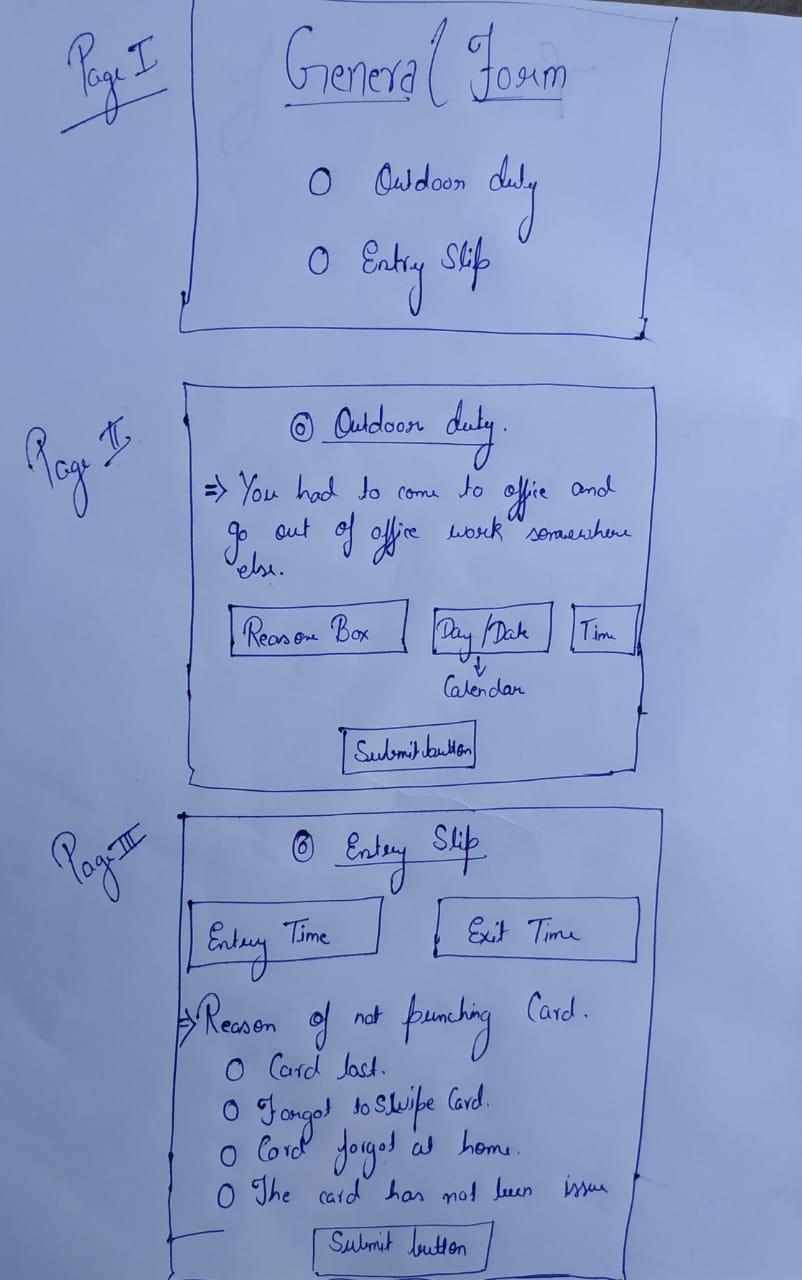 Page I
General Form
Outdoor duty
Entry Slip
Page II
Outdoor duty.
⇒ You had to come to office and
go out of office work somewhere
else.
Reason Box
Day/Date
Time
Calendar
Submit button
Page III
Entry Slip
Entry Time
Exit Time
⇒ Reason of not punching Card.
Card lost.
Forgot to Swipe Card.
Card forgot at home.
The card has not been issue
Submit button